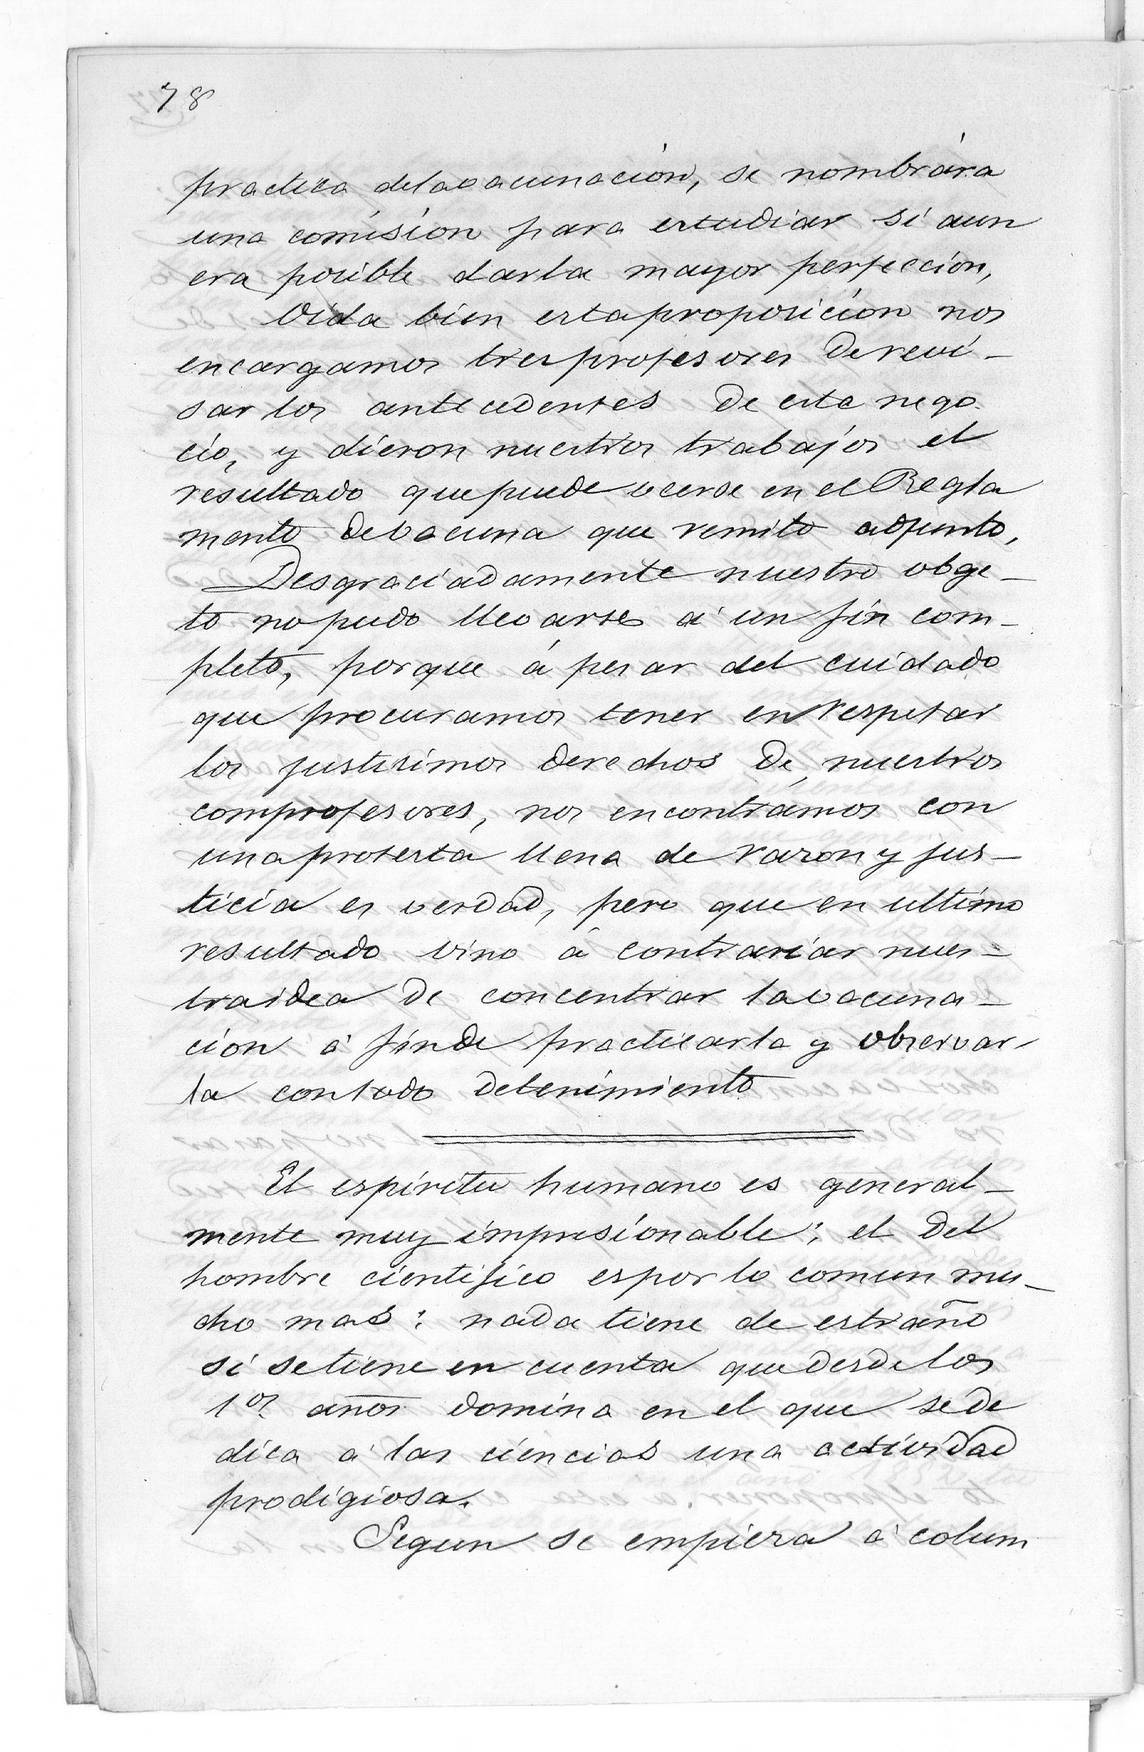 78
practica delavacunación, se nombrára
una comisión para estudiar si aun
era posible darla mayor perfeccion,
Oida bien estaproposición nos
encargamos tresprofesores derevi-
sar los antecedentes de este nego
cio, y dieron nuestros trabajos el
resultado quepuede veerse en el Regla
mento devacuna que remito adjunto,
Desgraciadamente nuestro obge-
to nopudo llevarse á un fin com-
pleto, porque á pesar del cuidado
que procuramos tener en respetar
los justisimos derechos de nuestros
comprofesores, nos encontrámos con
unaprotesta llena de razon y jus-
ticia es verdad, pero que en ultimo
resultado vino á contrariar nues-
traidea de concentrar lavacuna-
cion á finde practicarla y observar-
la contodo detenimiento
El espiritu humano es general-
mente muy impresionable; el del
hombre cientifico espor lo comun mu-
cho mas: nada tiene de estraño
si setiene en cuenta quedesdelos
1os. años domina en el que sede
dica á las ciencias una actividad
prodigiosa.
Segun se empieza á colum